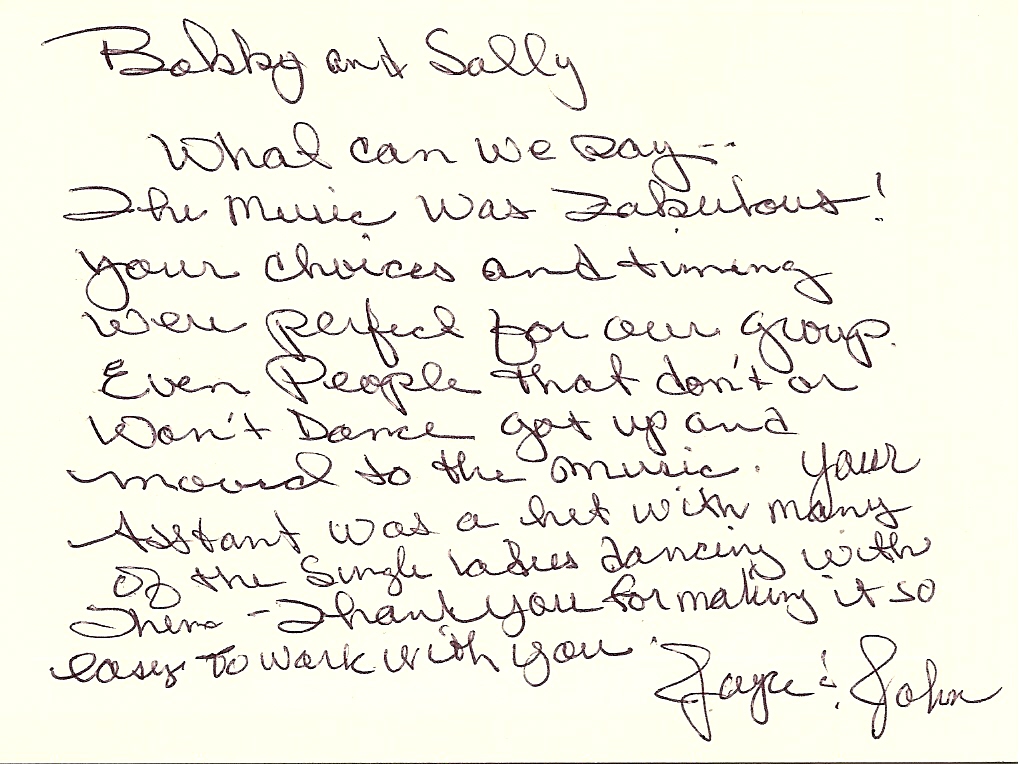 Bobby and Sally
What can we say--
The Music was Fabulous!
Your choices and timing
were perfect for our group.
Even People that don't or
Won't Dance got up and
moved to the music. Your
Asstant was a hit with many
of the Single ladies dancing with
Them - Thank you for making it so
easy to work with you.
Faye & John